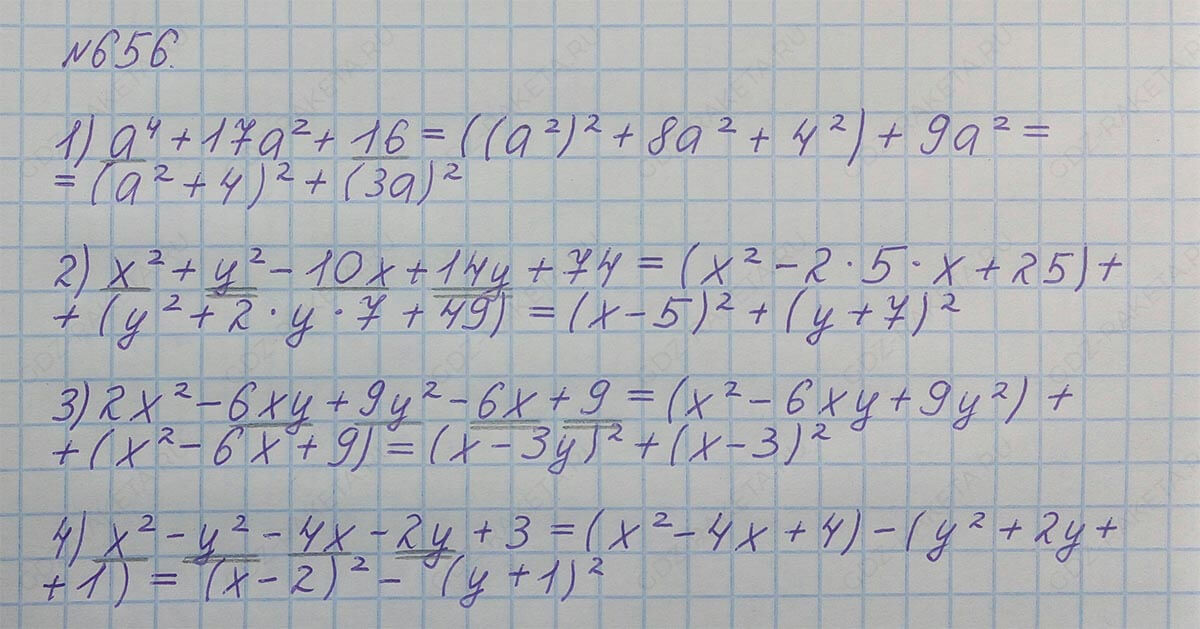 №656.
1) a⁴ + 17a² + 16 = ((a²)² + 8a² + 4²) + 9a² =
= (a² + 4)² + (3a)²
2) x² + y² - 10x + 14y + 74 = (x² - 2·5·x + 25) +
+ (y² + 2·y·7 + 49) = (x - 5)² + (y + 7)²
3) 2x² - 6xy + 9y² - 6x + 9 = (x² - 6xy + 9y²) +
+ (x² - 6x + 9) = (x - 3y)² + (x - 3)²
4) x² - y² - 4x - 2y + 3 = (x² - 4x + 4) - (y² + 2y +
+ 1) = (x - 2)² - (y + 1)²
GDZ-RAKETA.RU